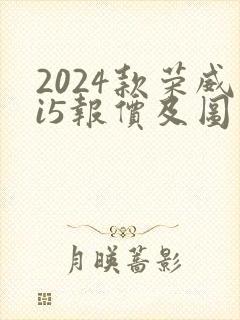 2024款荣威
i5報價及圖
月暎薔影